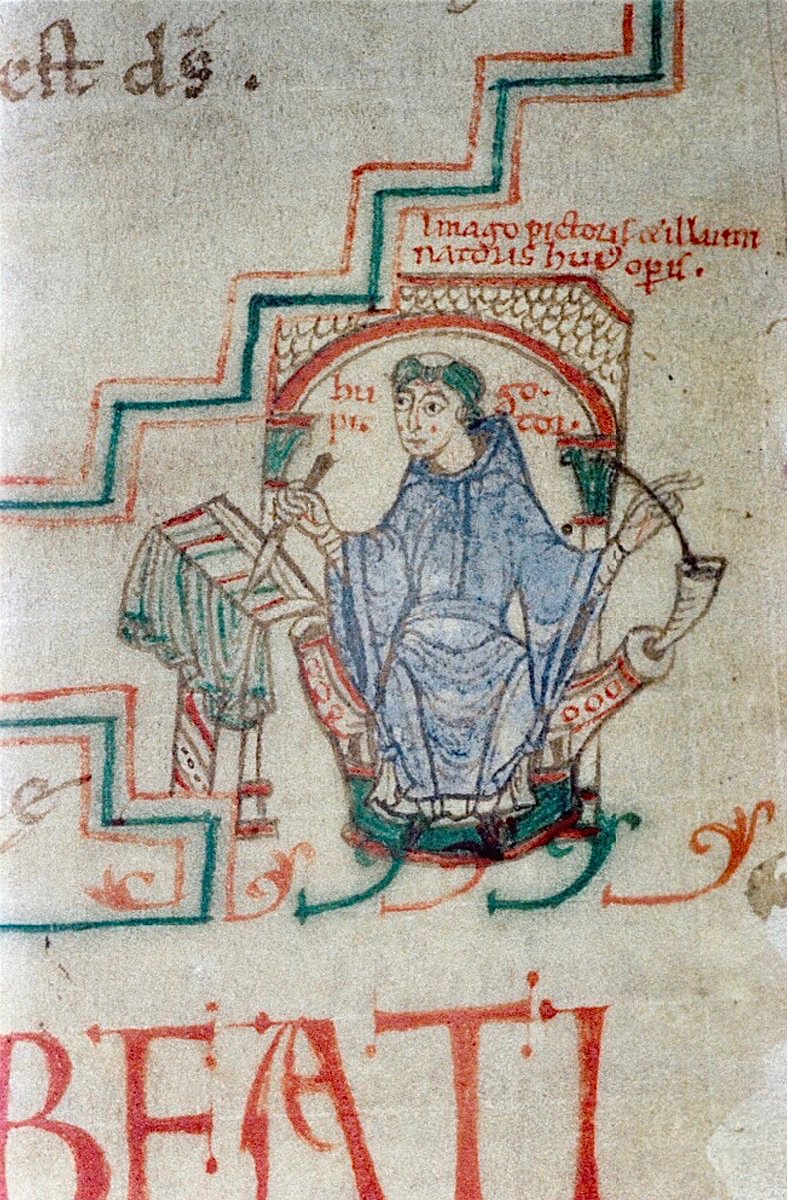 est ds̄.
Imago pictoris & illumi
natoris huiꝰ opis.
hu go.
pi. ctor.
e
BEATI